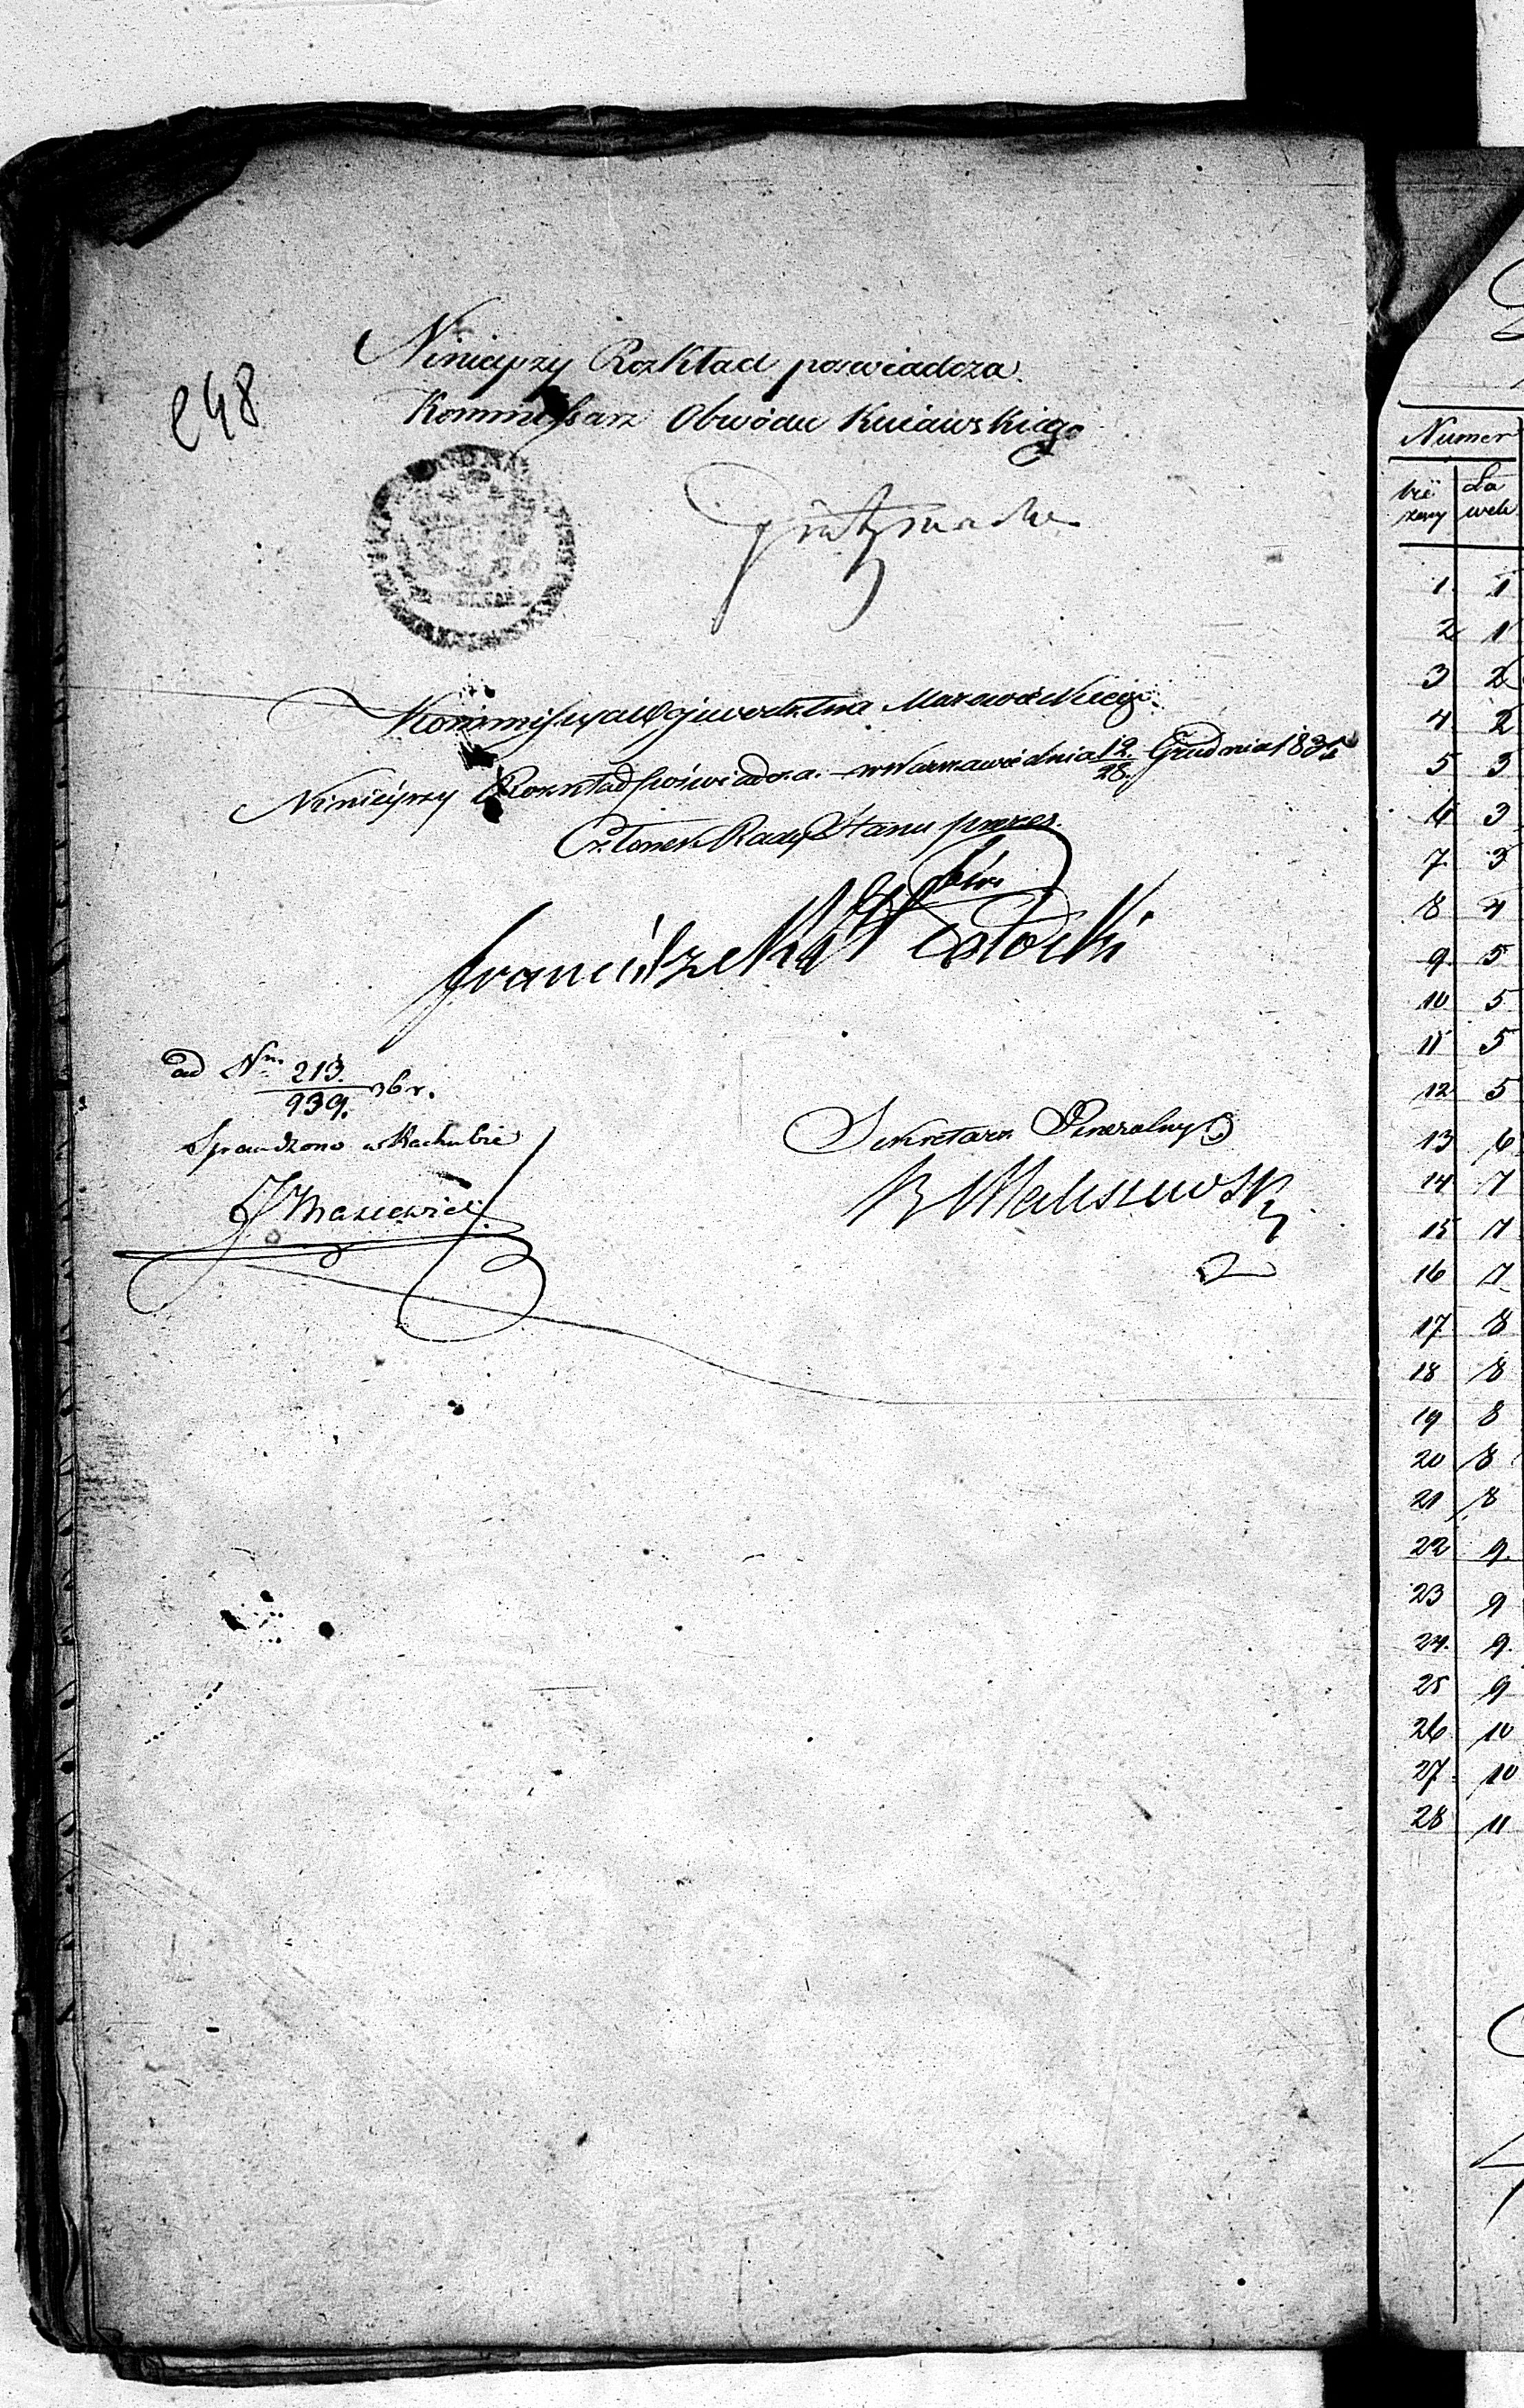 248
Ninieyszy Rozkład poswiadcza.
Kommissarz Obwodu Kuiawskiego
Kommissya Wojewodztwa Mazowieckiego.
Ninieyszy Rozkład poświadcza. w Warszawie dnia 12./28. Grudnia 183
Członek Rady Stanu prezes.
Franciszek
ad Nrm. 213./939. 36 r.
Sprawdzono w Rachubie
Sekretarz Generalny
Numer
bie
żący
Ła
wek
1 1
2 1
3 2
4 2
5 3
6 3
7 3
8 4
9 5
10 5
11 5
12 5
13 6
14 7
15 7
16 7
17 8
18 8
19 8
20 8
21 8
22 9.
23 9
24. 9.
25 9
26 10
27 10
28 11